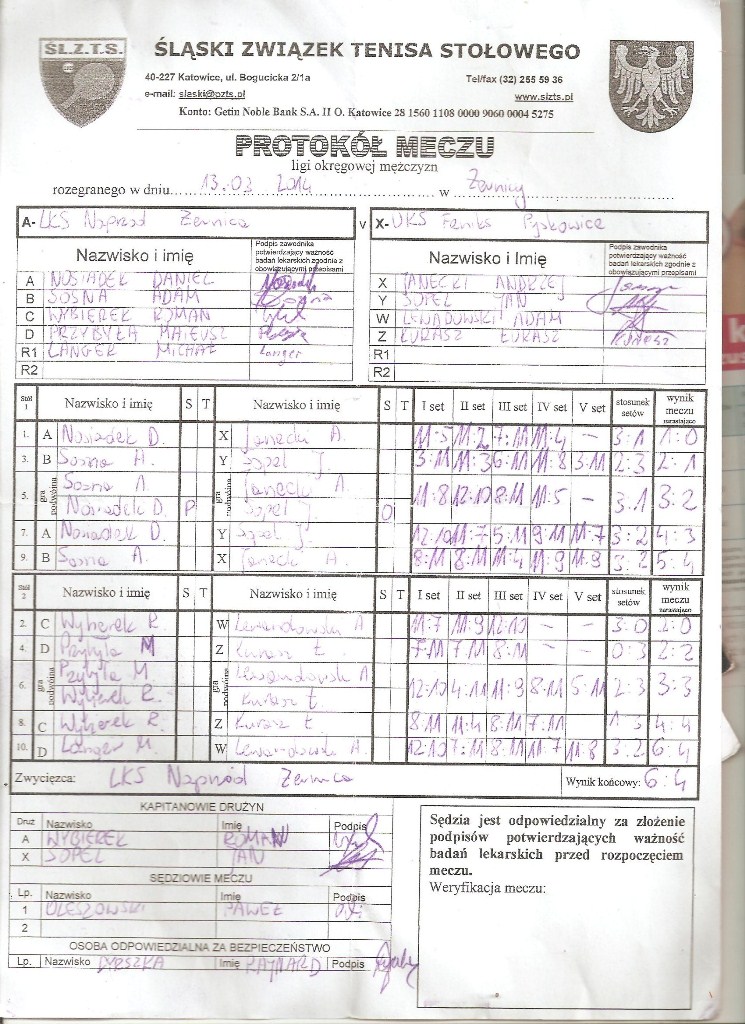 ŚL.Z.T.S.
ŚLĄSKI ZWIĄZEK TENISA STOŁOWEGO
40-227 Katowice, ul. Bogucicka 2/1a Tel/fax (32) 255 59 36
e-mail: slaski@pzts.pl www.slzts.pl
Konto: Getin Noble Bank S.A. II O. Katowice 28 1560 1108 0000 9060 0004 5275
PROTOKÓŁ MECZU
ligi okręgowej mężczyzn
rozegranego w dniu 13.03 2014 w Żernicy
A- LKS Naprzód Żernica v X- UKS Feniks Pyskowice
Nazwisko i imię Podpis zawodnika potwierdzający ważność badań lekarskich zgodnie z obowiązującymi przepisami Nazwisko i Imię Podpis zawodnika potwierdzający ważność badań lekarskich zgodnie z obowiązującymi przepisami
A NOSIADEK DANIEL X JANECKI ANDRZEJ
B SOSNA ADAM Sosna Y SOPEL JAN
C WYBIEREK ROMAN W LEWADOWSKI ADAM
D PRZYBYŁA MATEUSZ Z ŁUKASZ
R1 LANGER MICHAŁ Langer R1
R2 R2
Stół 1 Nazwisko i imię S T Nazwisko i imię S T I set II set III set IV set V set stosunek setów wynik meczu narastająco
1. A Nosiadek D. X Janecki A. 11:5 11:2 7:11 11:4 – 3:1 1:0
3. B Sosna A. Y Sopel J. 3:11 11:3 6:11 11:8 3:11 2:3 2:1
5. gra podwójna Sosna A gra podwójna Janecki A. 11:8 12:10 8:11 11:5 – 3:1 3:2
Nosiadek D. P Sopel J. O
7. A Nosiadek D. Y Sopel J. 12:10 11:7 5:11 9:11 11:7 3:2 4:3
9. B Sosna A. X Janecki A. 8:11 8:11 11:4 11:9 11:9 3:2 5:4
Stół 2 Nazwisko i imię S T Nazwisko i imię S T I set II set III set IV set V set stosunek setów wynik meczu narastająco
2. C Wybierek R. W Lewandowski A 11:7 11:9 12:10 – – 3:0 2:0
4. D Przybyła M Z Ł. 7:11 7:11 8:11 – – 0:3 2:2
6. gra podwójna Przybyła M. gra podwójna Lewandowski A 12:10 4:11 11:9 8:11 5:11 2:3 3:3
Wybierek R. Ł.
8. C Wybierek R. Z Ł 8:11 11:4 8:11 7:11 1:3 4:4
10. D Langer M. W Lewandowski A. 12:10 7:11 8:11 11:7 11:8 3:2 6:4
Zwycięzca: LKS Naprzód Żernica Wynik końcowy: 6:4
KAPITANOWIE DRUŻYN
Druż Nazwisko Imię Podpis
A WYBIEREK ROMAN
X SOPEL JAN
SĘDZIOWIE MECZU
Lp. Nazwisko Imię Podpis
1 OLESZOWSKI PAWEŁ
2
OSOBA ODPOWIEDZIALNA ZA BEZPIECZEŃSTWO
Lp. Nazwisko Imię Podpis
Sędzia jest odpowiedzialny za złożenie
podpisów potwierdzających ważność
badań lekarskich przed rozpoczęciem
meczu.
Weryfikacja meczu: